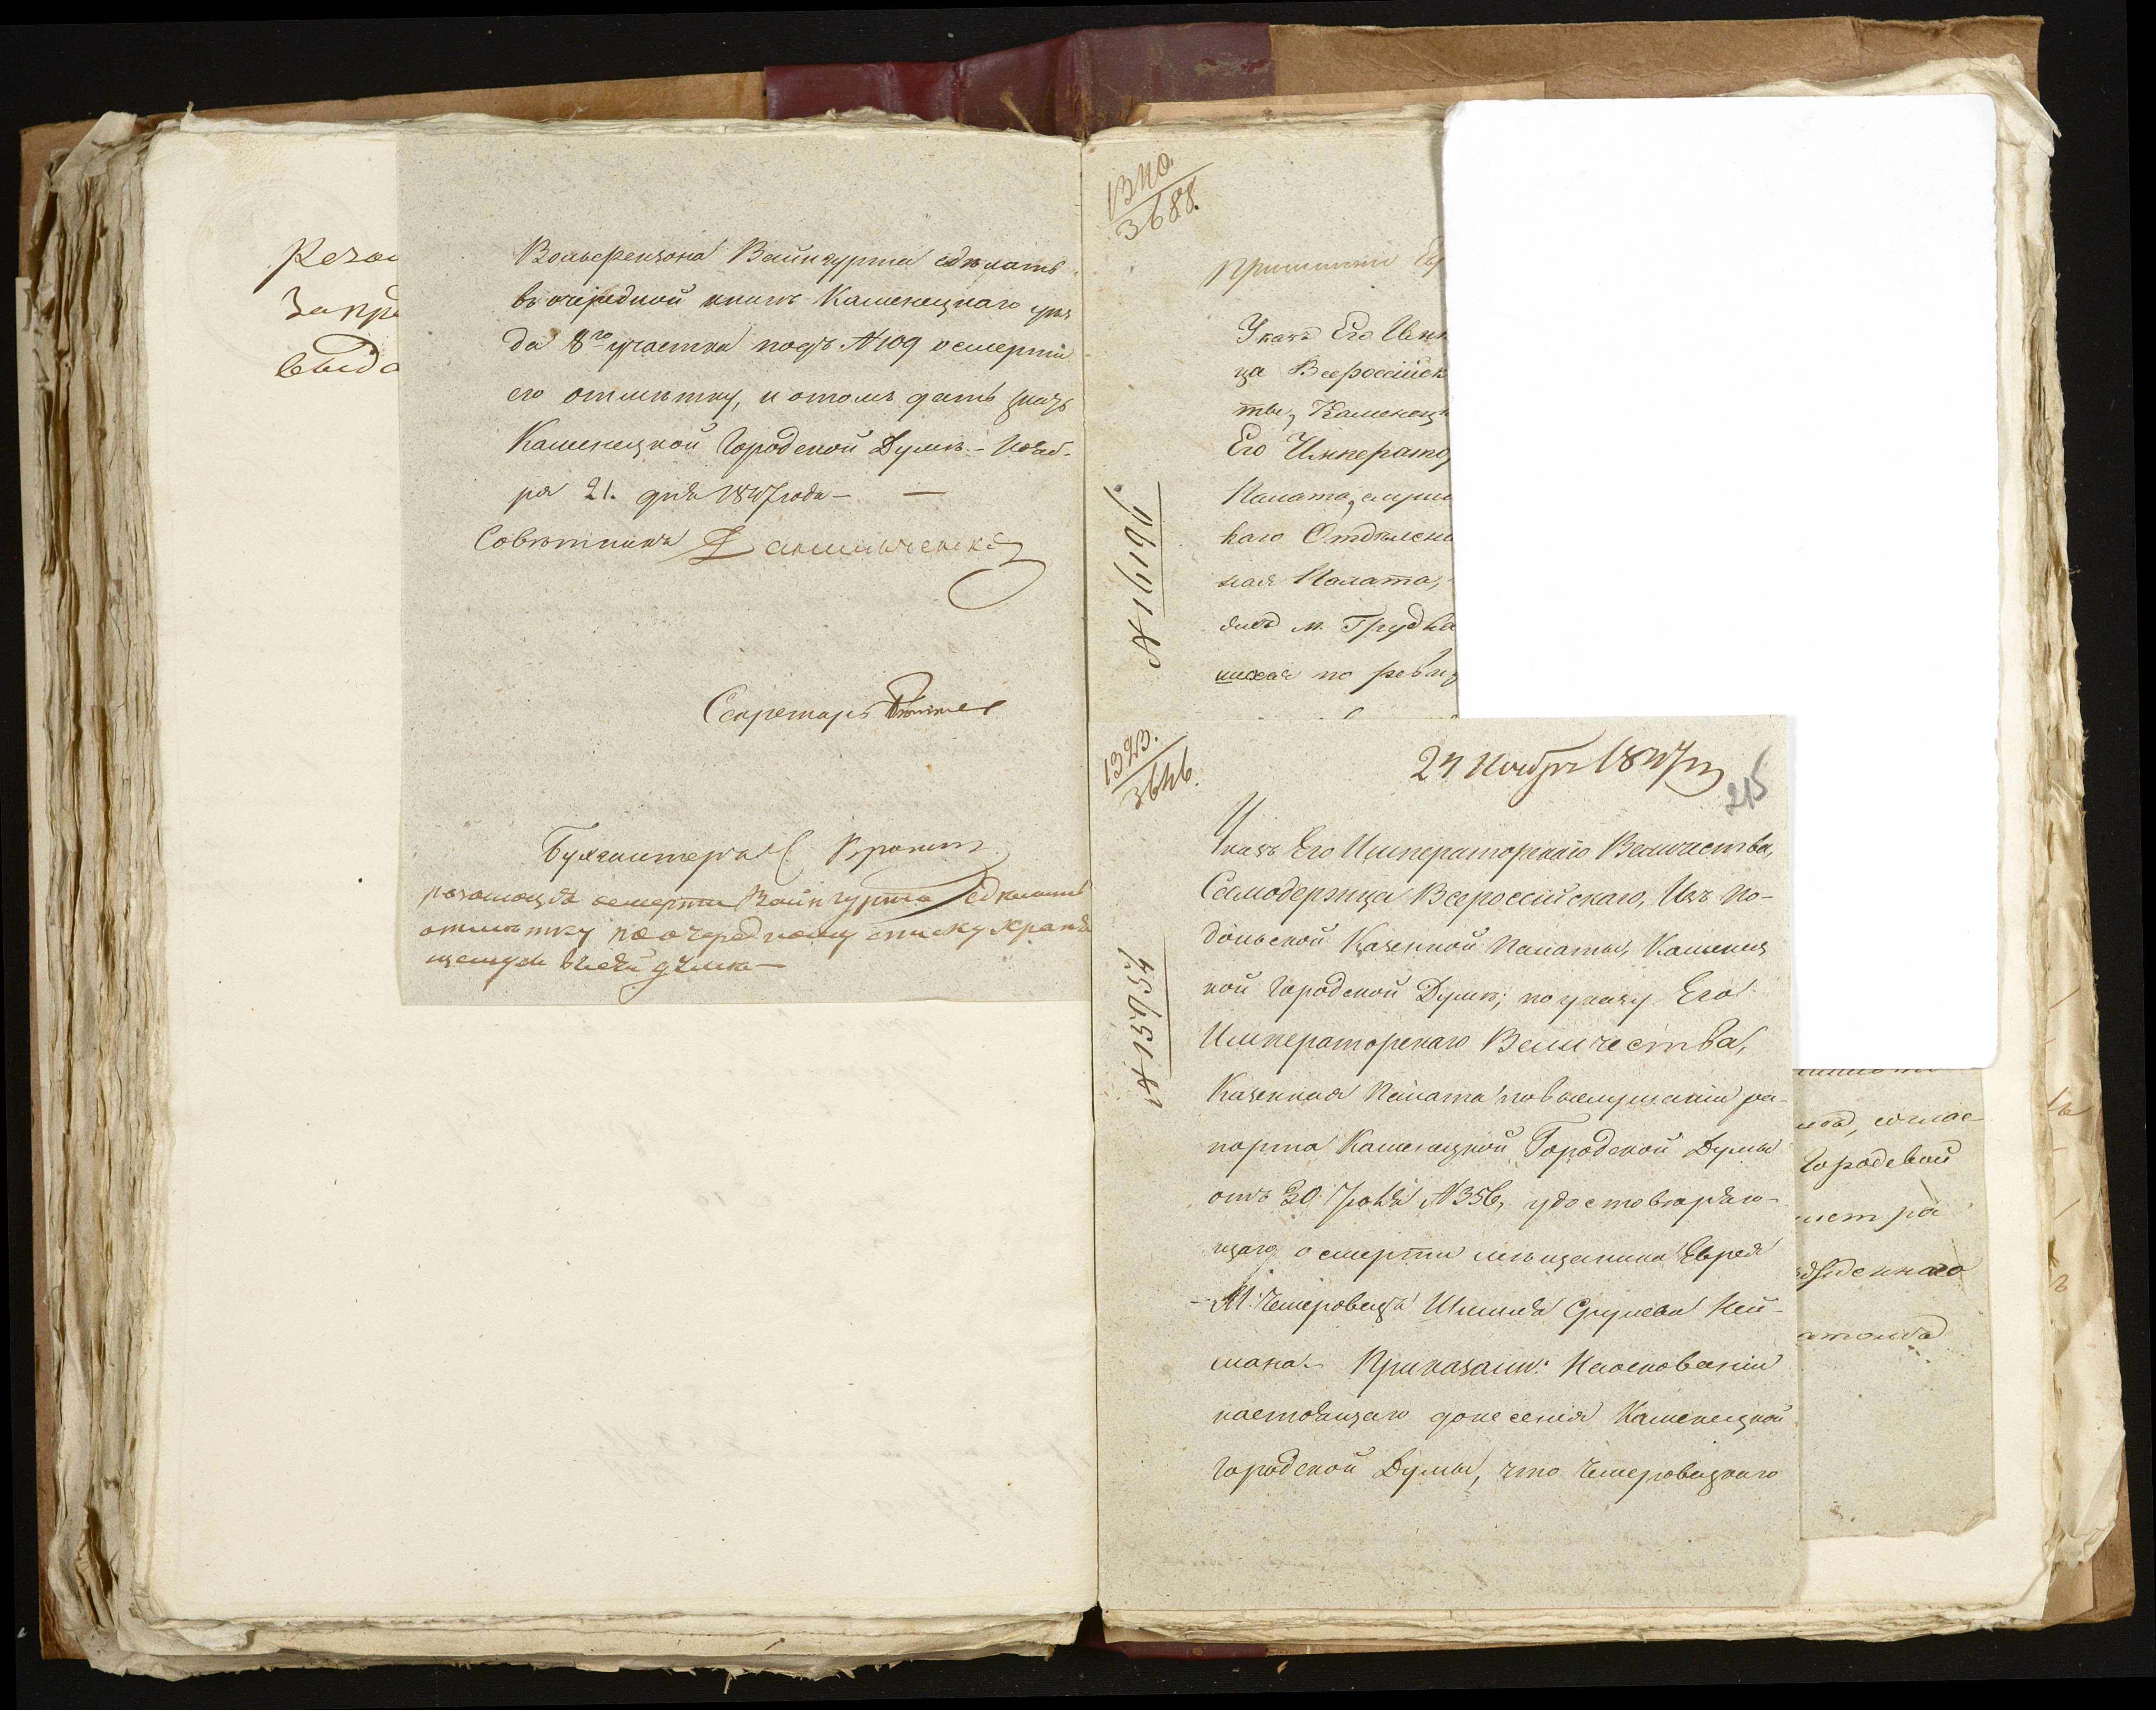 Резо
Запр
выда
Вольфензона Вайнгурта сдѣлать
въ очередной книгѣ Каменецкаго уѣз
да 8го участка подъ №109 о смерти
его отмѣтку, и о томъ дать указъ
Каменецкой Городской Думѣ. – Нояб-
ря 21. дня 1847 года –
Совѣтникъ
Секретарь
Бухгалтеръ
резолюція о смерти Вайнгурта сдѣлать
отмѣтку по очередному списку храня
щемуся въ сей думѣ –
1340.
3688.
№ 16194
Указъ Его Импе
ца Всероссійск
ты, Каменецк
Его Императо
Палата, слуш
каго Отдѣлен
ная Палата,
м. Грудка
по ревиз
1323.
3646.
№ 15954
24 Ноября 1847 г
215
Указъ Его Императорскаго Величества,
Самодержца Всероссійскаго, Изъ По-
дольской Казенной Палаты, Каменец
кой Городской Думѣ; по указу Его
Императорскаго Величества,
Казенная Палата по выслушаніи ра-
порта Каменецкой Городской Думы
отъ 30 Іюня №356, удостовѣряю-
щаго о смерти мѣщанина Еврея
М. Чемеровецъ Шмиля Сруліова Ней-
мана. – Приказали: На основаніи
настоящаго донесенія Каменецкой
Городской Думы, что Чемеровецкаго
соглас
Городовой